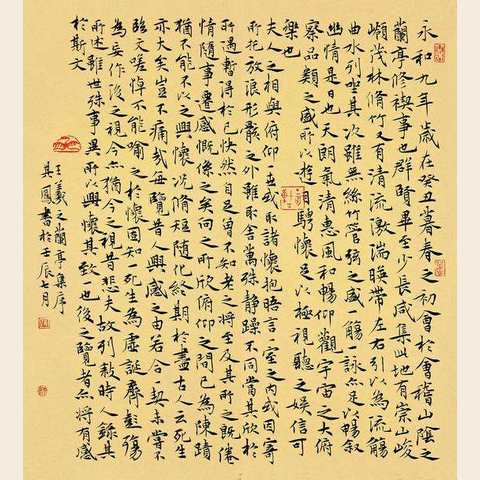 永和九年歲在癸丑暮春之初會於會稽山陰之
蘭亭修禊事也群賢畢至少長咸集此地有崇山峻
嶺茂林修竹又有清流激湍暎帶左右引以為流觴
曲水列坐其次雖無絲竹管弦之盛一觴一詠亦足以暢敘
幽情是日也天朗氣清惠風和暢仰觀宇宙之大俯
察品類之盛所以遊目騁懷足以極視聽之娛信可
樂也
夫人之相與俯仰一世或取諸懷抱晤言一室之內或因寄
所托放浪形骸之外雖取舍萬殊靜躁不同當其欣於
所遇暫得於己快然自足不知老之將至及其所之既倦
情隨事遷感慨係之矣向之所欣俯仰之間已為陳蹟
猶不能不以之興懷況修短隨化終期於盡古人云死生
亦大矣豈不痛哉每覽昔人興感之由若合一契未嘗不
臨文嗟悼不能喻之於懷固知一死生為虛誕齊彭殤
為妄作後之視今亦猶今之視昔悲夫故列敘時人錄其
所述雖世殊事異所以興懷其致一也後之覽者亦將有感
於斯文
王羲之蘭亭集序
其鳳書於壬辰七月